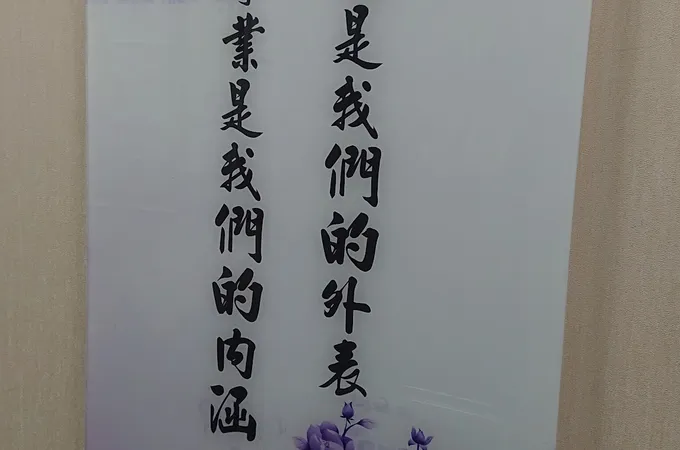 是我們的外表
業是我們的內涵